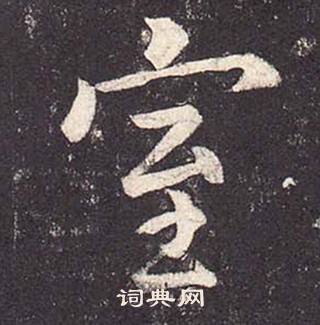 室
词典网